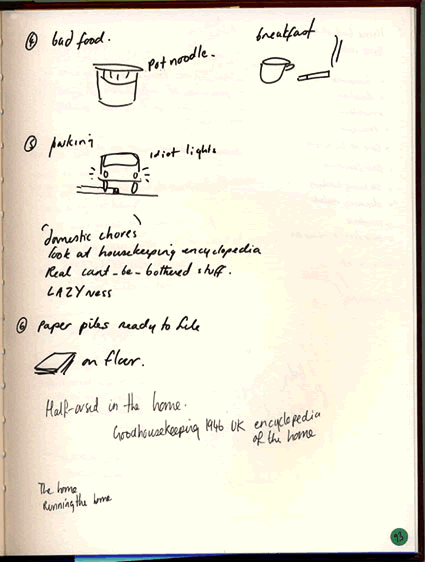 ④ bad food.
pot noodle.
breakfast
⑤ parking
idiot lights
(domestic chores)
look at housekeeping encyclopedia
Real cant-be-bothered stuff.
LAZYness
⑥ paper piles ready to file
on floor.
Half-arsed in the home.
Goodhousekeeping 1946 UK encyclopedia
of the home
The home
Running the home
93